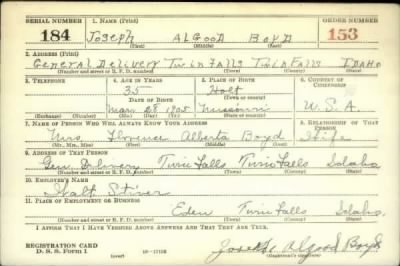 SERIAL NUMBER 1. NAME (Print) ORDER NUMBER
184 Joseph Algood Boyd 153
(First) (Middle) (Last)
2. ADDRESS (Print)
General Delivery Twin Falls Twin Falls Idaho
(Number and street or R. F. D. number) (Town) (County) (State)
3. TELEPHONE 4. AGE IN YEARS 5. PLACE OF BIRTH 6. COUNTRY OF CITIZENSHIP
35 Holt
DATE OF BIRTH (Town or county)
Mar. 28 1905 Missouri U.S.A.
(Exchange) (Number) (Mo.) (Day) (Yr.) (State or country)
7. NAME OF PERSON WHO WILL ALWAYS KNOW YOUR ADDRESS 8. RELATIONSHIP OF THAT PERSON
Mrs. Florence Alberta Boyd Wife
(Mr., Mrs., Miss) (First) (Middle) (Last)
9. ADDRESS OF THAT PERSON
Gen. Delivery Twin Falls Twin Falls Idaho
(Number and street or R. F. D. number) (Town) (County) (State)
10. EMPLOYER'S NAME
11. PLACE OF EMPLOYMENT OR BUSINESS
Eden Twin Falls Idaho.
(Number and street or R. F. D. number) (Town) (County) (State)
I AFFIRM THAT I HAVE VERIFIED ABOVE ANSWERS AND THAT THEY ARE TRUE.
REGISTRATION CARD
D. S. S. Form 1 (over) Joseph Algood Boyd
(Registrant's signature)